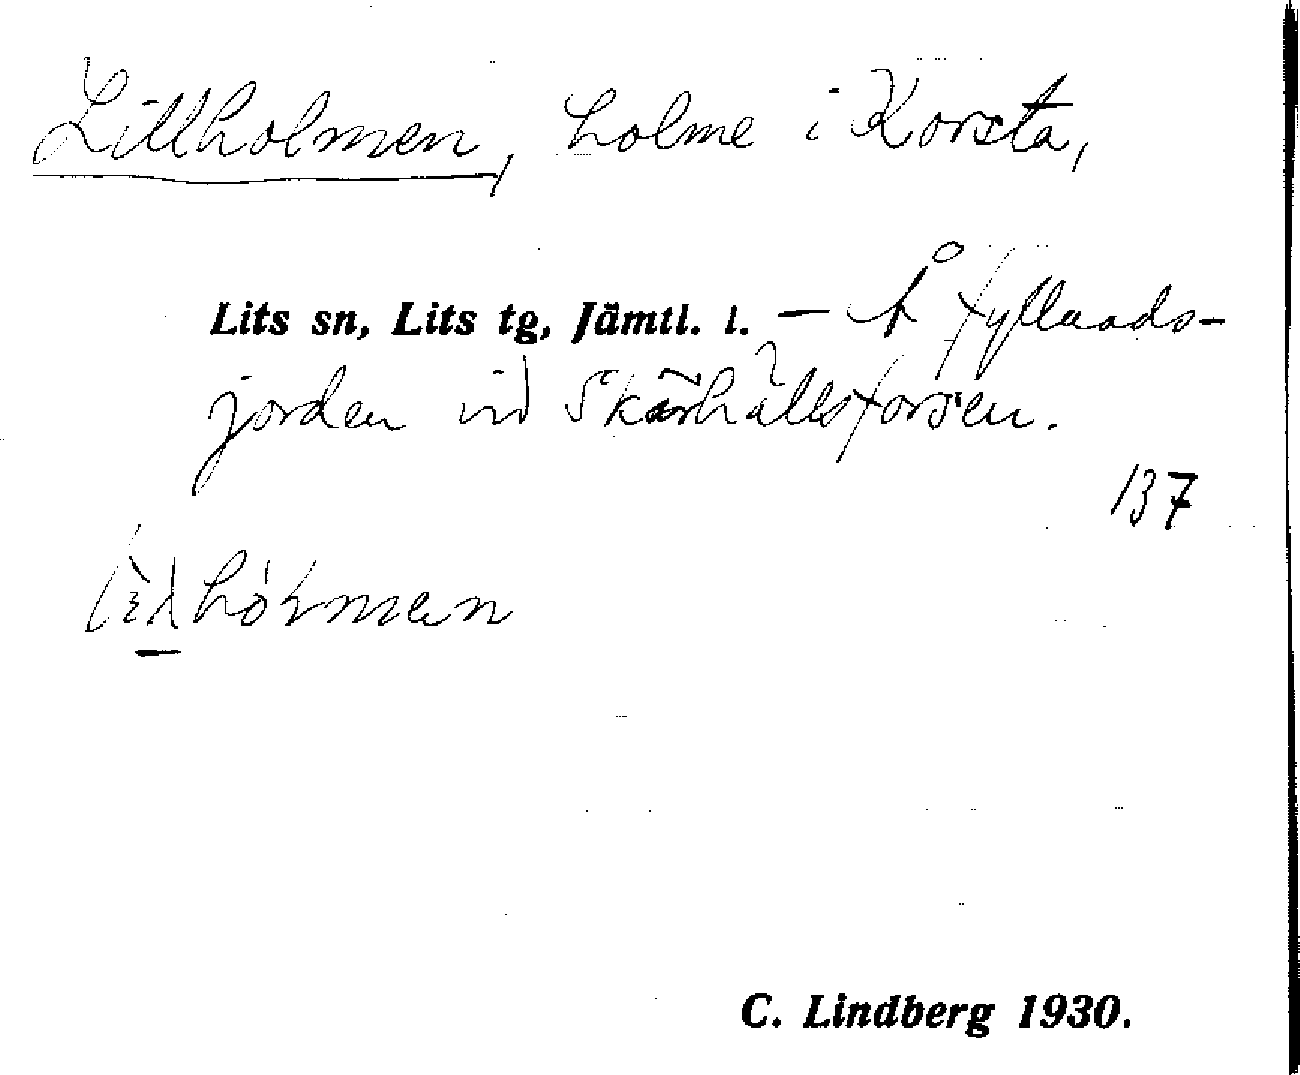 Lillholmen, holme i Korsta,
Lits sn, Lits tg, Jämtl. l. — Å fyllnads-
jorden vid Skärhällsforsen.
137
C. Lindberg 1930.